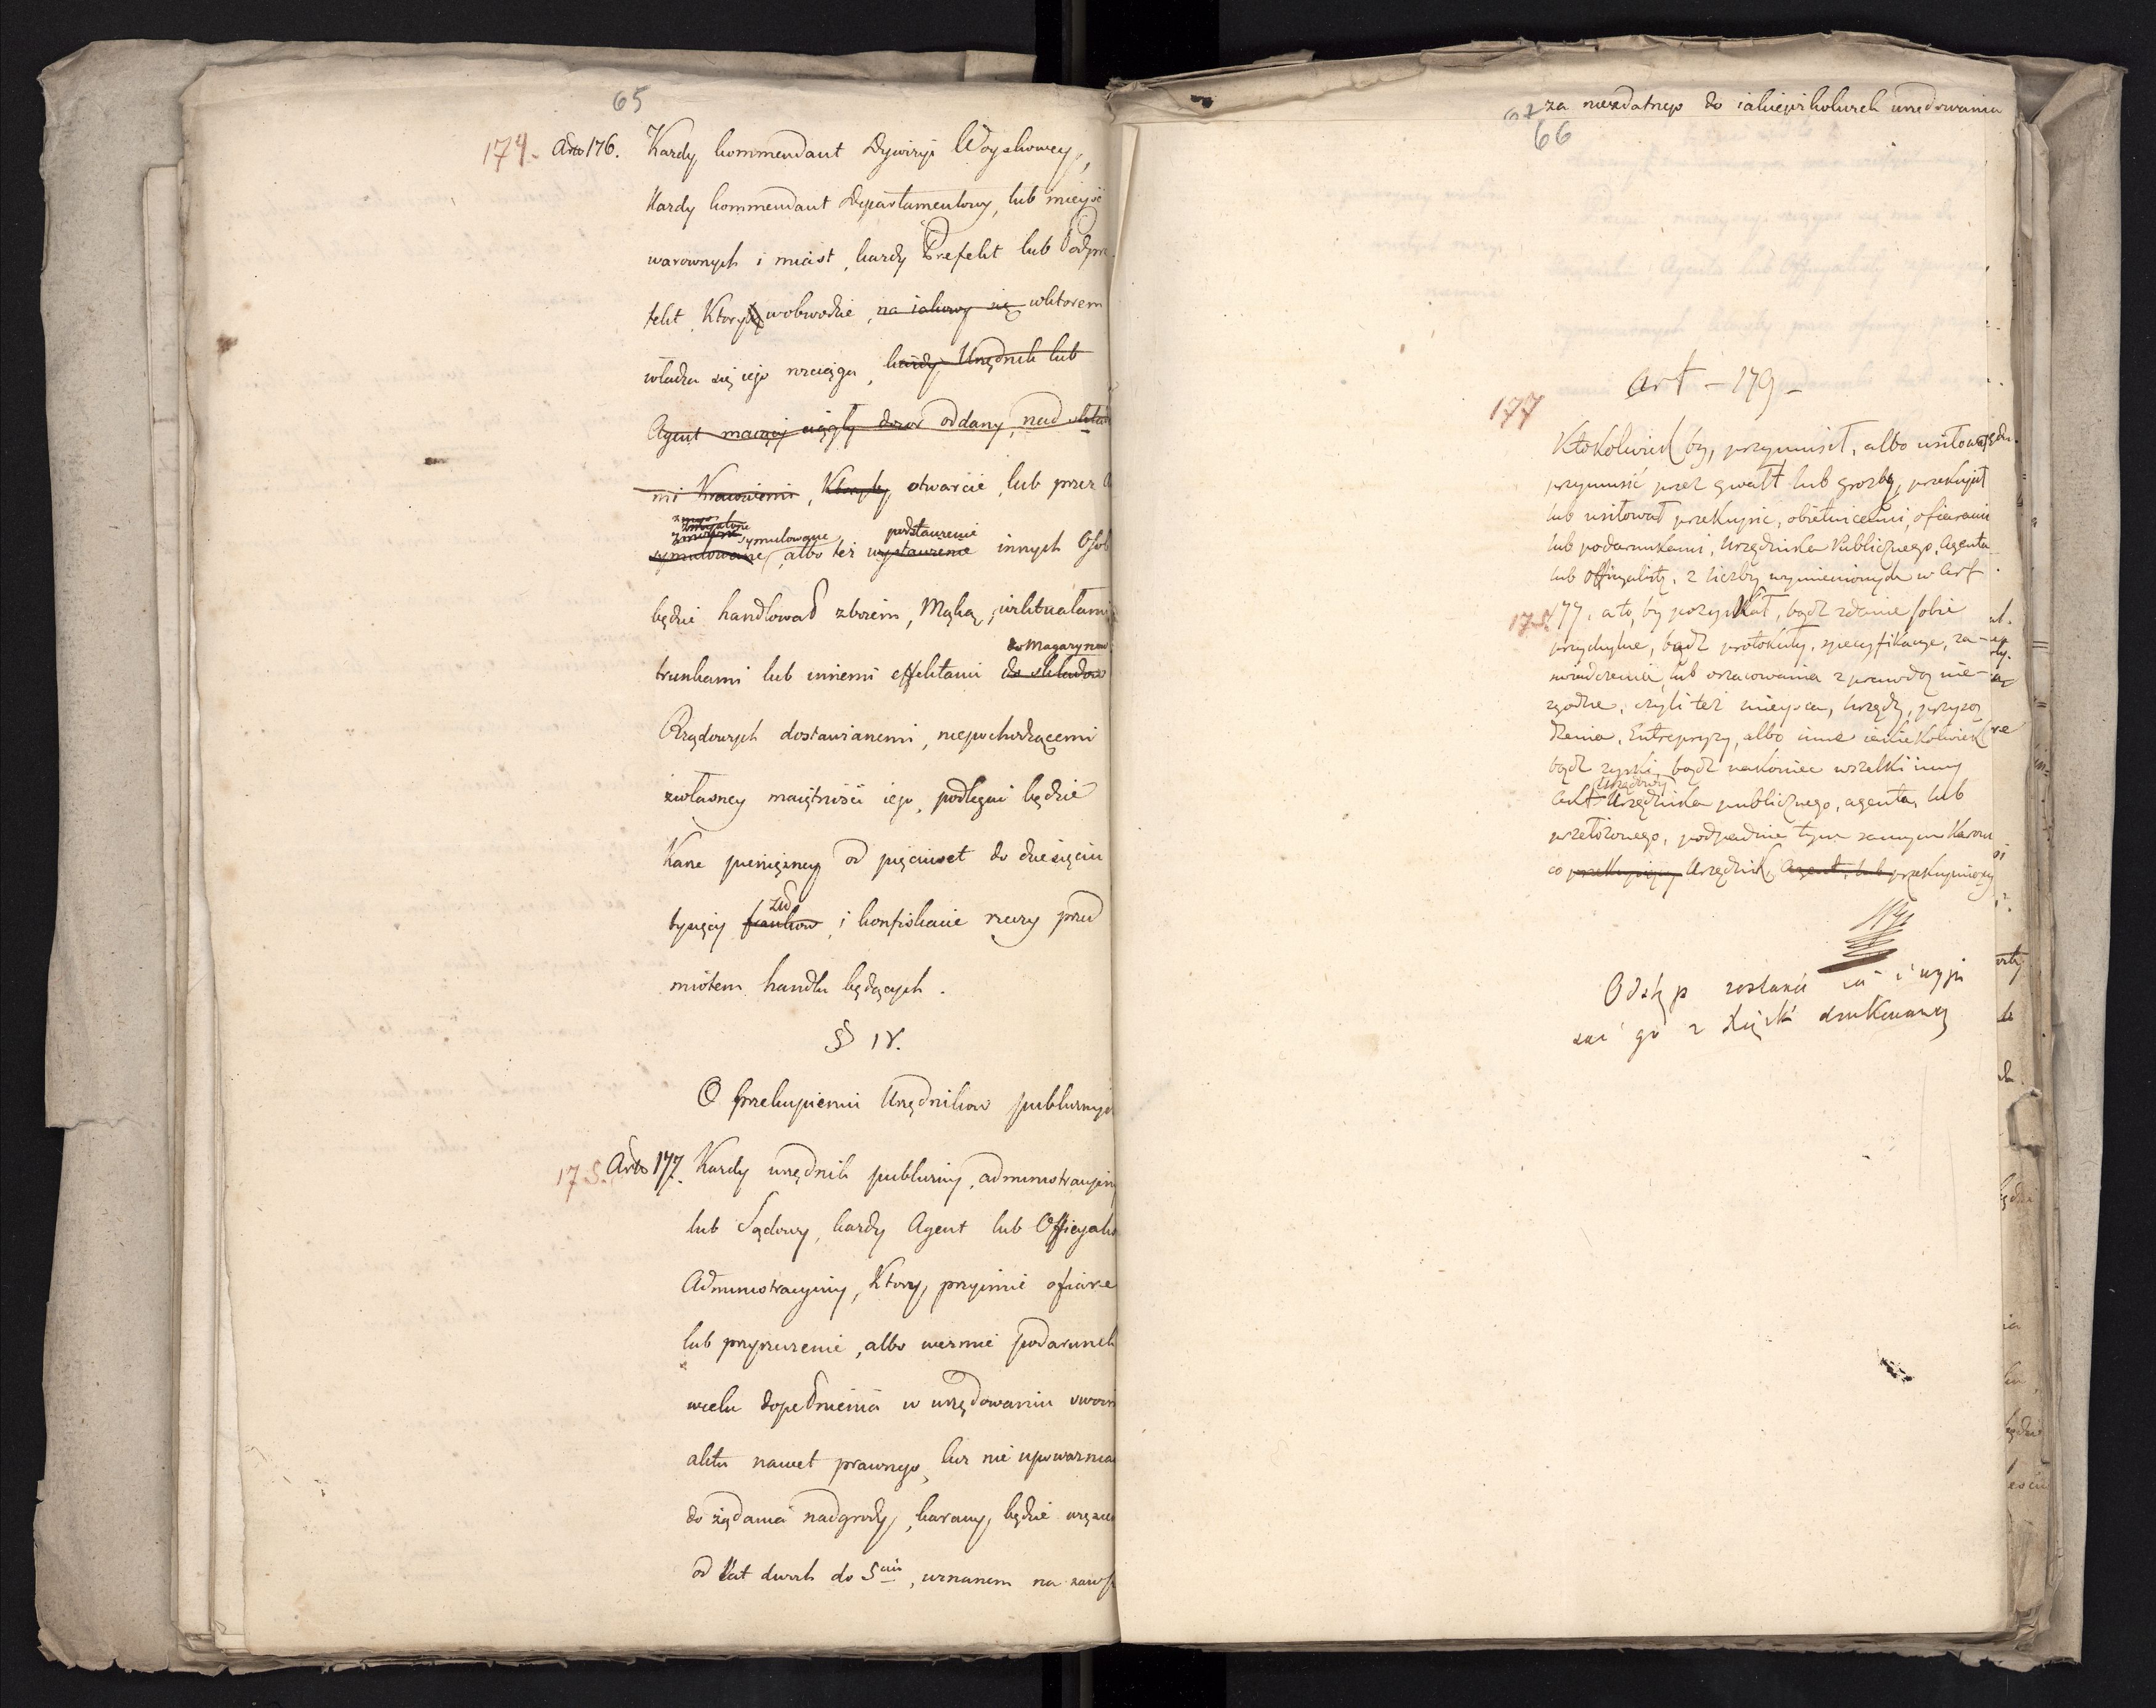 65
174. Art 176. Kazdy kommendant Dywizyi Woyskowey,
kazdy kommendant Departamentowy, lub mieysc
warownych i miast, kazdy Prefekt lub Podpre
fekt, Ktory wobwodzie, na iakowy się wktorem
władza się iego rozciąga, kazdy Urzędnik lub
Agent maiący ciągły dozor oddany, nad
mi Kraiowemi, Ktoryby otwarcie, lub przez
symulowane, podstawienie
symulowane, albo też wystawienie innych Osob
będzie handlował zbożem, Mąką, wiktuałami
do Magazynow
trunkami lub innemi effektami do składow
Rządowych dostawianemi, niepochodzącemi
zwłasney maiętności iego, podlegać będzie
Karze pieniężney od pięciuset do dziesięciu
złł
tysięcy frankow, i konfiskacie rzeczy przed
miotem handlu będących.
§ IV.
O przekupieniu Urzędnikow publicznych
175. Art 177. Kazdy urzędnik publiczny, administracyiny
lub Sądowy, kazdy Agent lub Officyali
Administracyiny, Ktory, przyimie ofiare
lub przyrzeczenie, albo wezmie podarunek
wcelu dopełnienia w urzędowaniu swoim
aktu nawet prawnego, lecz nie upowaznia
do żądania nadgrody, karany, będzie
od lat dwoch do 5ciu, uznanem na zawsz
za niezdatnego do iakieykolwiek urzędowania
67
66
Art - 179 -
177
Ktokolwiek by, przymusił, albo usiłował
przymusić przez gwałt lub grozby, przekupił
lub usiłował przekupić, obietnicami, ofiarami
lub podarunkami, Urzędnika Publicznego, Agenta
lub Officyalistę, z liczby wymienionych w Art
175. 177, a to, by pozyskał, bądz zdanie sobie
przychylne, bądz protokuły, specyfikacye, za-
swiadczenia, lub oszacowania z prawdą nie-
zgodne, czyli też mieysca, Urzędy, przysą
dzenia, Entrepryzy, albo inne iakiekolwiek
bądz zyski, bądz nakoniec wszelki inny
Urzędowy
Akt Urzędnika publicznego, agenta, lub
przełożonego, podpadnie tym samym Karom
co przekupiony Urzędnik, Agent, lub przekupiony
Odstęp zostawić i wypi
sać go z Xięzki drukowaney